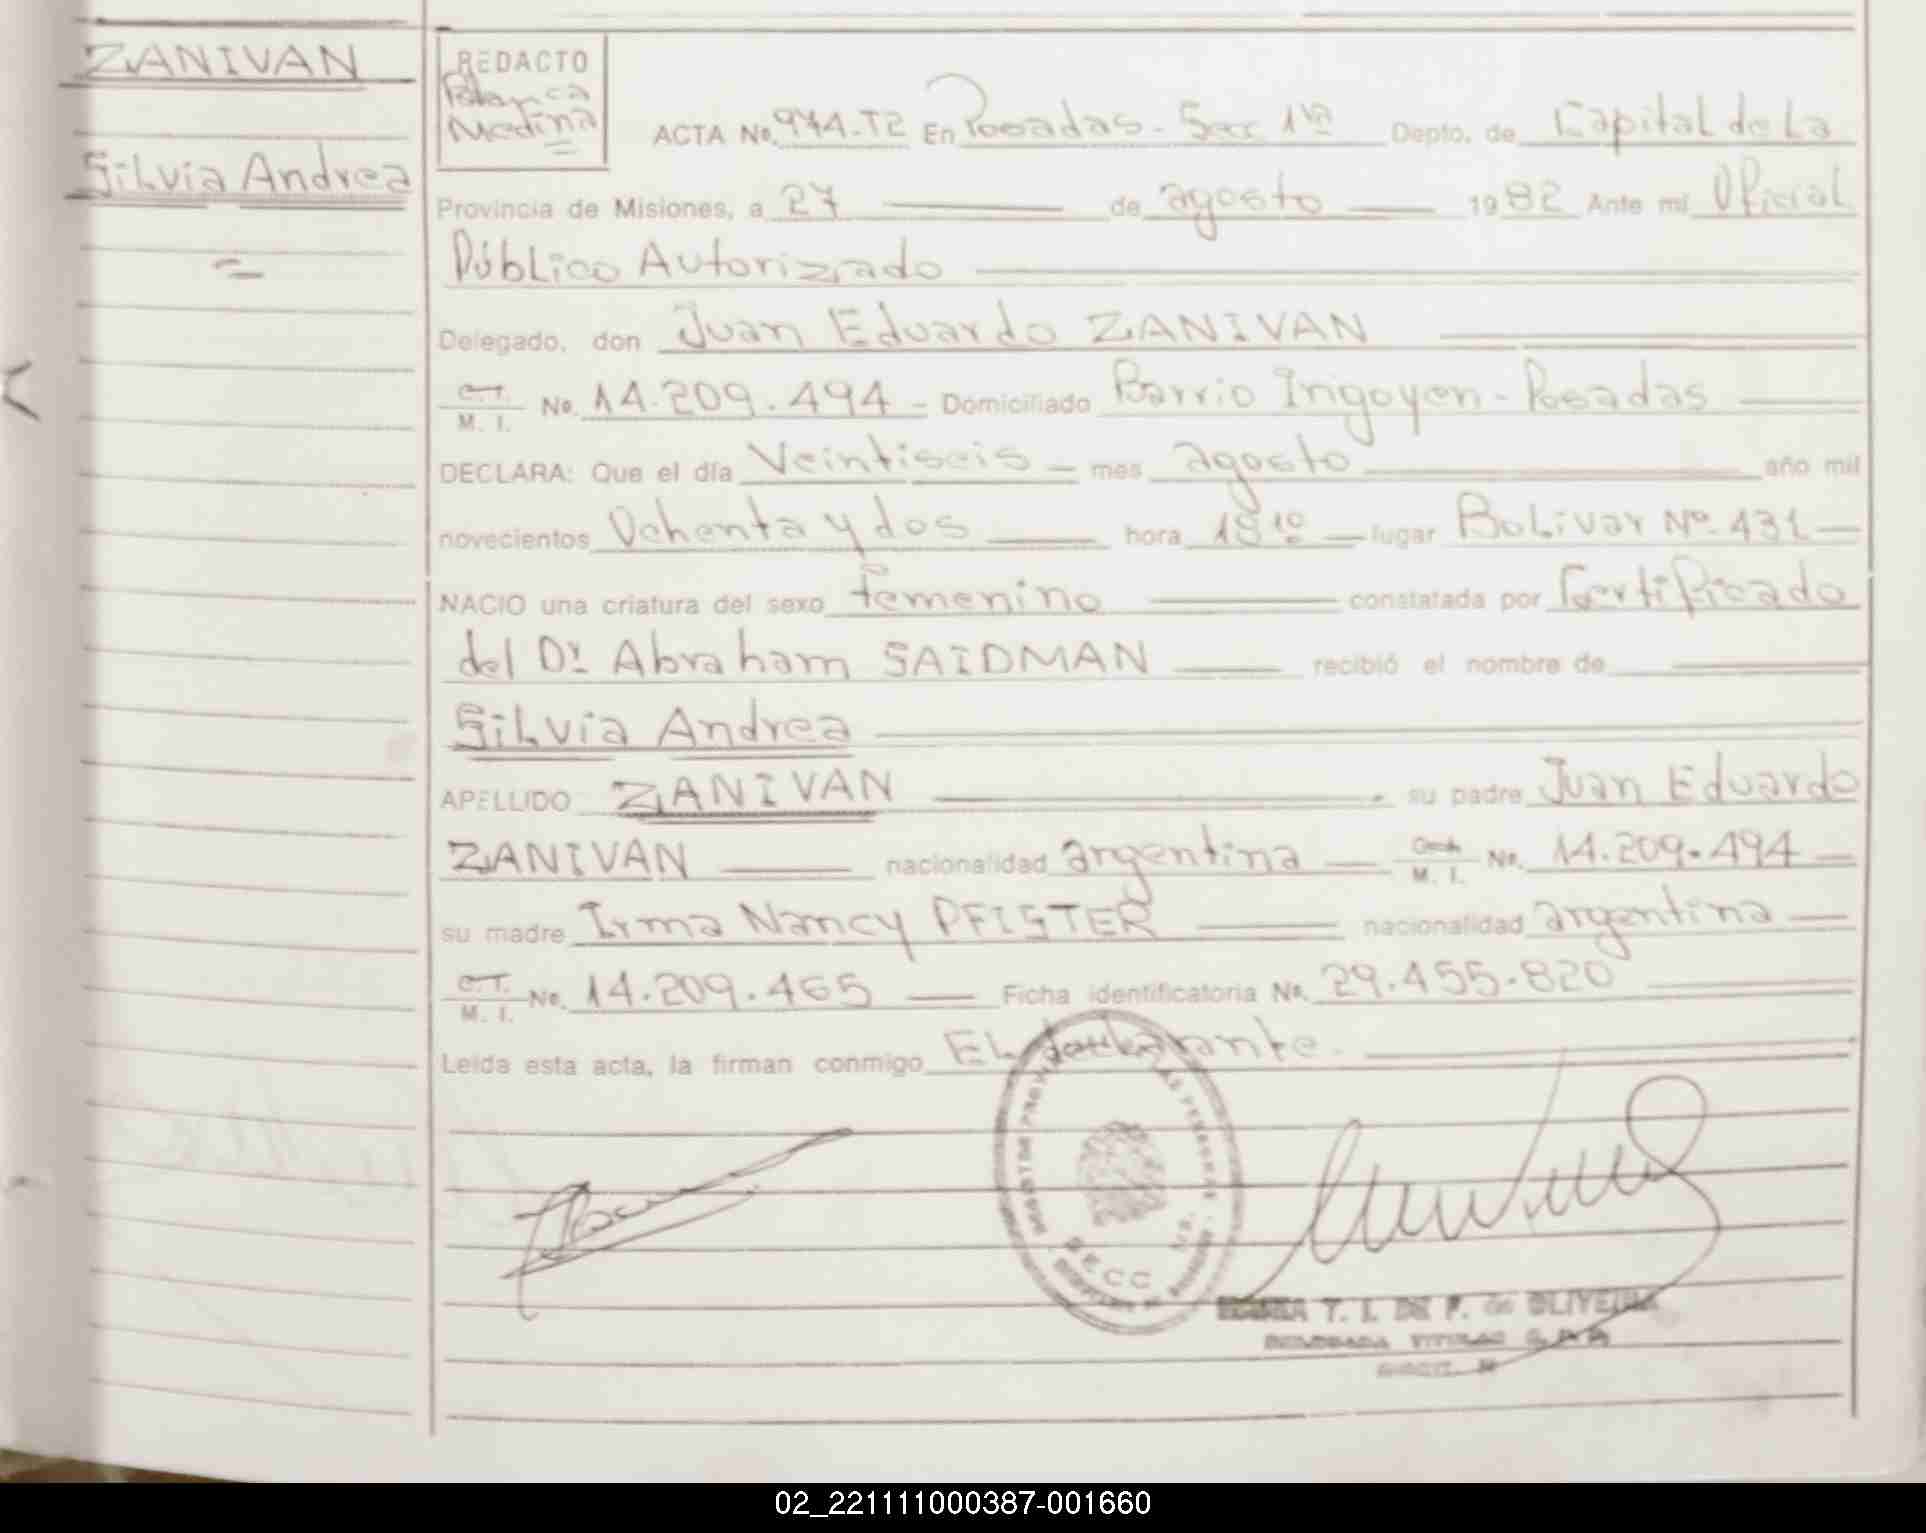 ZANIVAN
Silvia Andrea
REDACTO
Blanca
Medina
ACTA No. 974-T2 En Posadas - Secc 1ra Depto. de Capital de La
Provincia de Misiones, a 27 de agosto 1982 Ante mí Oficial
Público Autorizado
Delegado, don Juan Eduardo ZANIVAN
C.I. M. I. No. 14.209.494 - Domiciliado Barrio Irigoyen - Posadas
DECLARA: Que el día Veintiseis mes agosto año mil
novecientos Ochenta y dos hora 18 10 lugar Bolivar Nº 431
NACIO una criatura del sexo femenino constatada por Certificado
del Dr. Abraham SAIDMAN recibió el nombre de
Silvia Andrea
APELLIDO ZANIVAN su padre Juan Eduardo
ZANIVAN nacionalidad argentina M. I. No. 14.209.494
su madre Irma Nancy PFISTER nacionalidad argentina
C.I. M. I. No. 14.209.465 Ficha identificatoria No. 29.455.820
Leída esta acta, la firman conmigo El declarante.
T. I. DE F. de OLIVEIRA
02_221111000387-001660